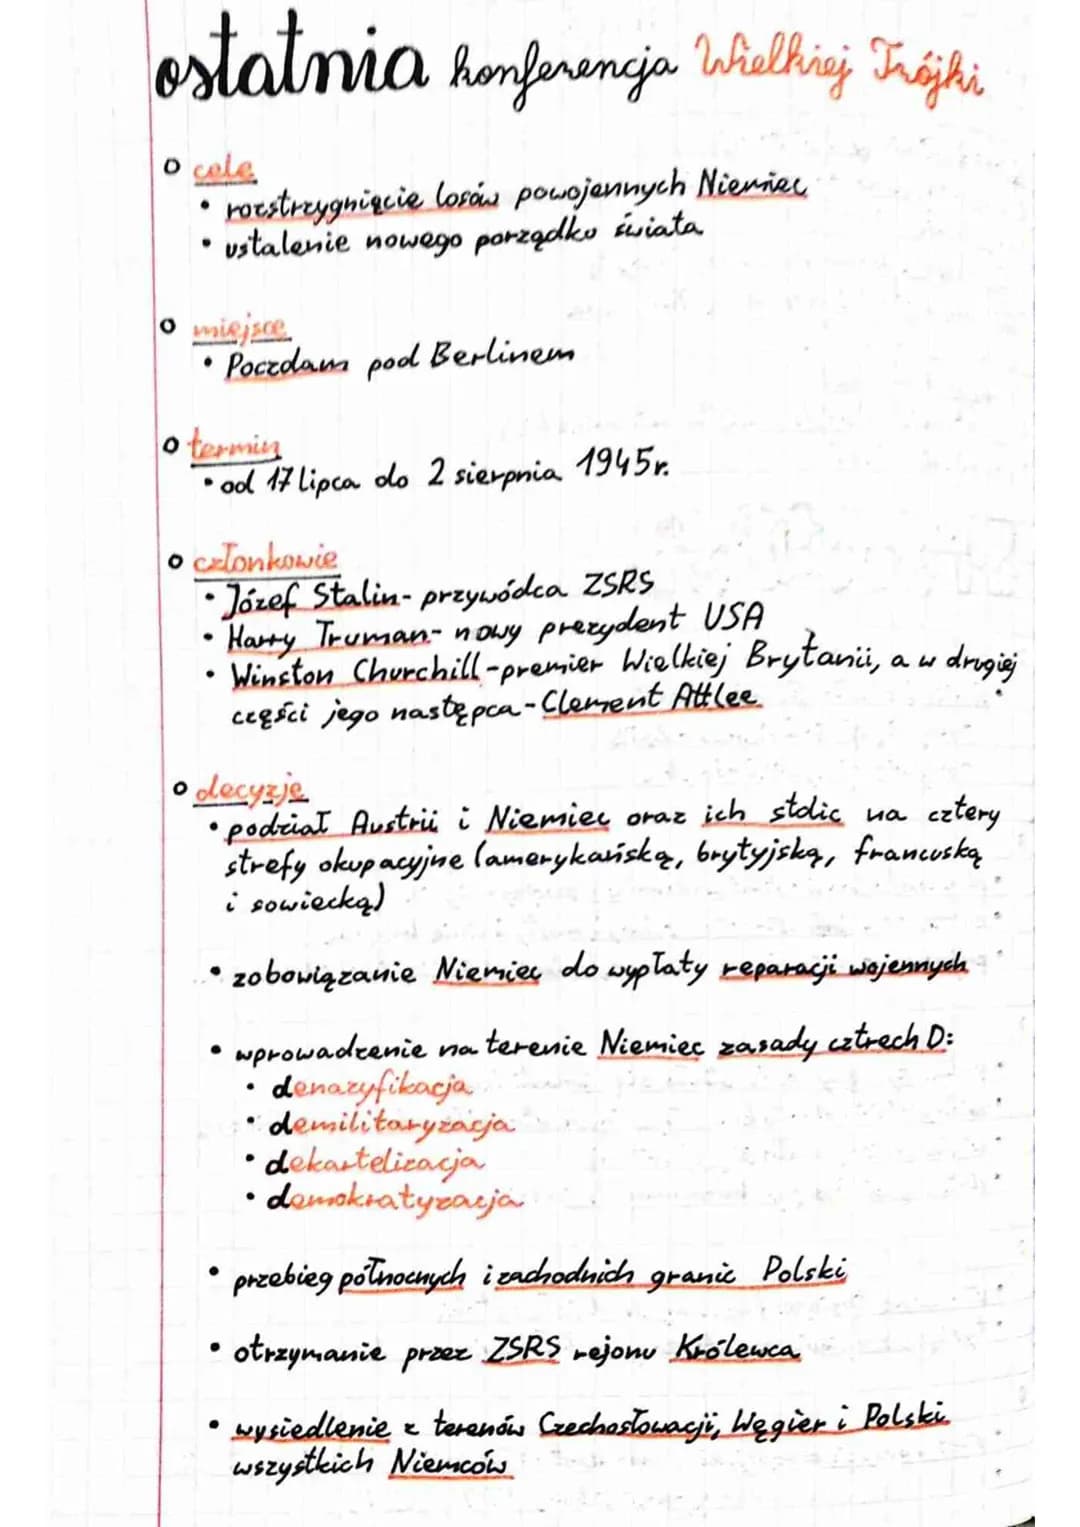 ostatnia konferencja Wielkiej Trójki
cele
• rozstrzygnięcie losów powojennych Niemiec
• ustalenie nowego porządku świata
miejsce
• Poczdam pod Berlinem
termin
• od 17 lipca do 2 sierpnia 1945r.
członkowie
• Józef Stalin- przywódca ZSRS
• Harry Truman- nowy prezydent USA
• Winston Churchill-premier Wielkiej Brytanii, a w drugiej
części jego następca-Clement Attlee
decyzje
• podział Austrii i Niemiec oraz ich stolic na cztery
strefy okupacyjne (amerykańską, brytyjską, francuską
i sowiecką)
• zobowiązanie Niemiec do wypłaty reparacji wojennych
• wprowadzenie na terenie Niemiec zasady cztrech D:
• denazyfikacja
• demilitaryzacja
• dekartelizacja
• demokratyzacja
• przebieg północnych i zachodnich granic Polski
• otrzymanie przez ZSRS rejonu Królewca
• wysiedlenie z terenów Czechosłowacji, Węgier i Polski
wszystkich Niemców